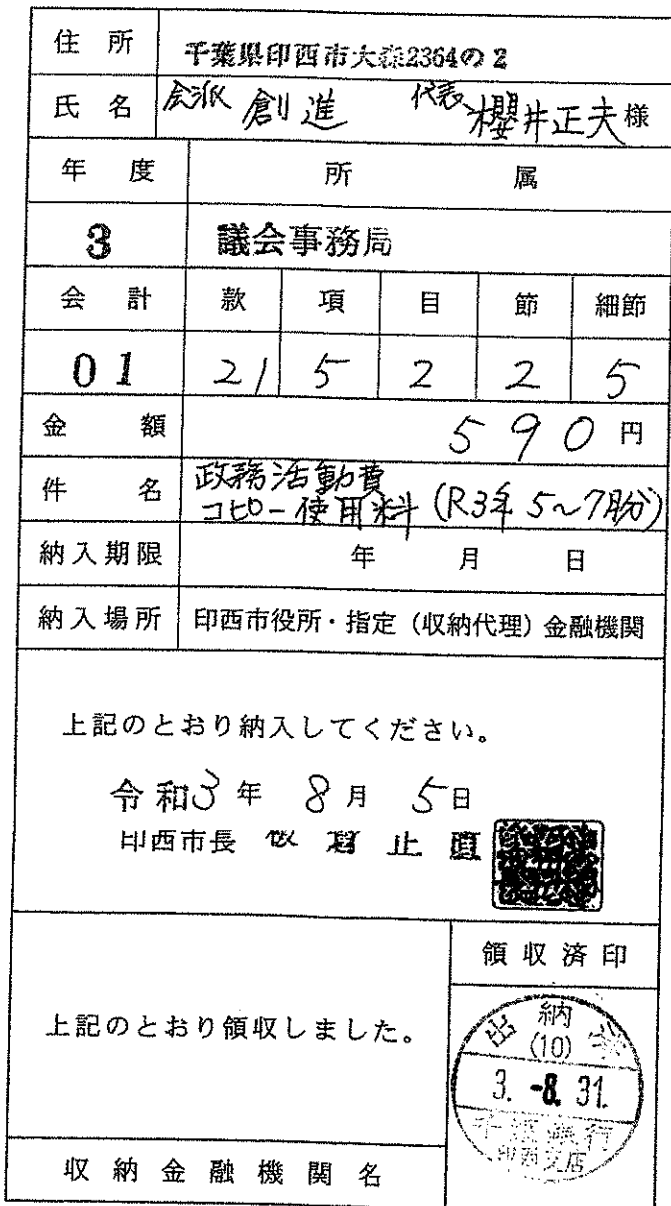 住所 千葉県印西市大森2364の2
氏名 会派 創進 代表 櫻井正夫様
年度 所属
3 議会事務局
会計 款 項 目 節 細節
01 21 5 2 2 5
金額 590円
件名 政務活動費
コピー使用料(R3年5~7月分)
納入期限 年 月 日
納入場所 印西市役所・指定(収納代理)金融機関
上記のとおり納入してください。
令和3年 8月 5日
印西市長 板倉正直
領収済印
上記のとおり領収しました。
出納
(10)
3.-8.31.
千葉銀行
印西支店
収納金融機関名